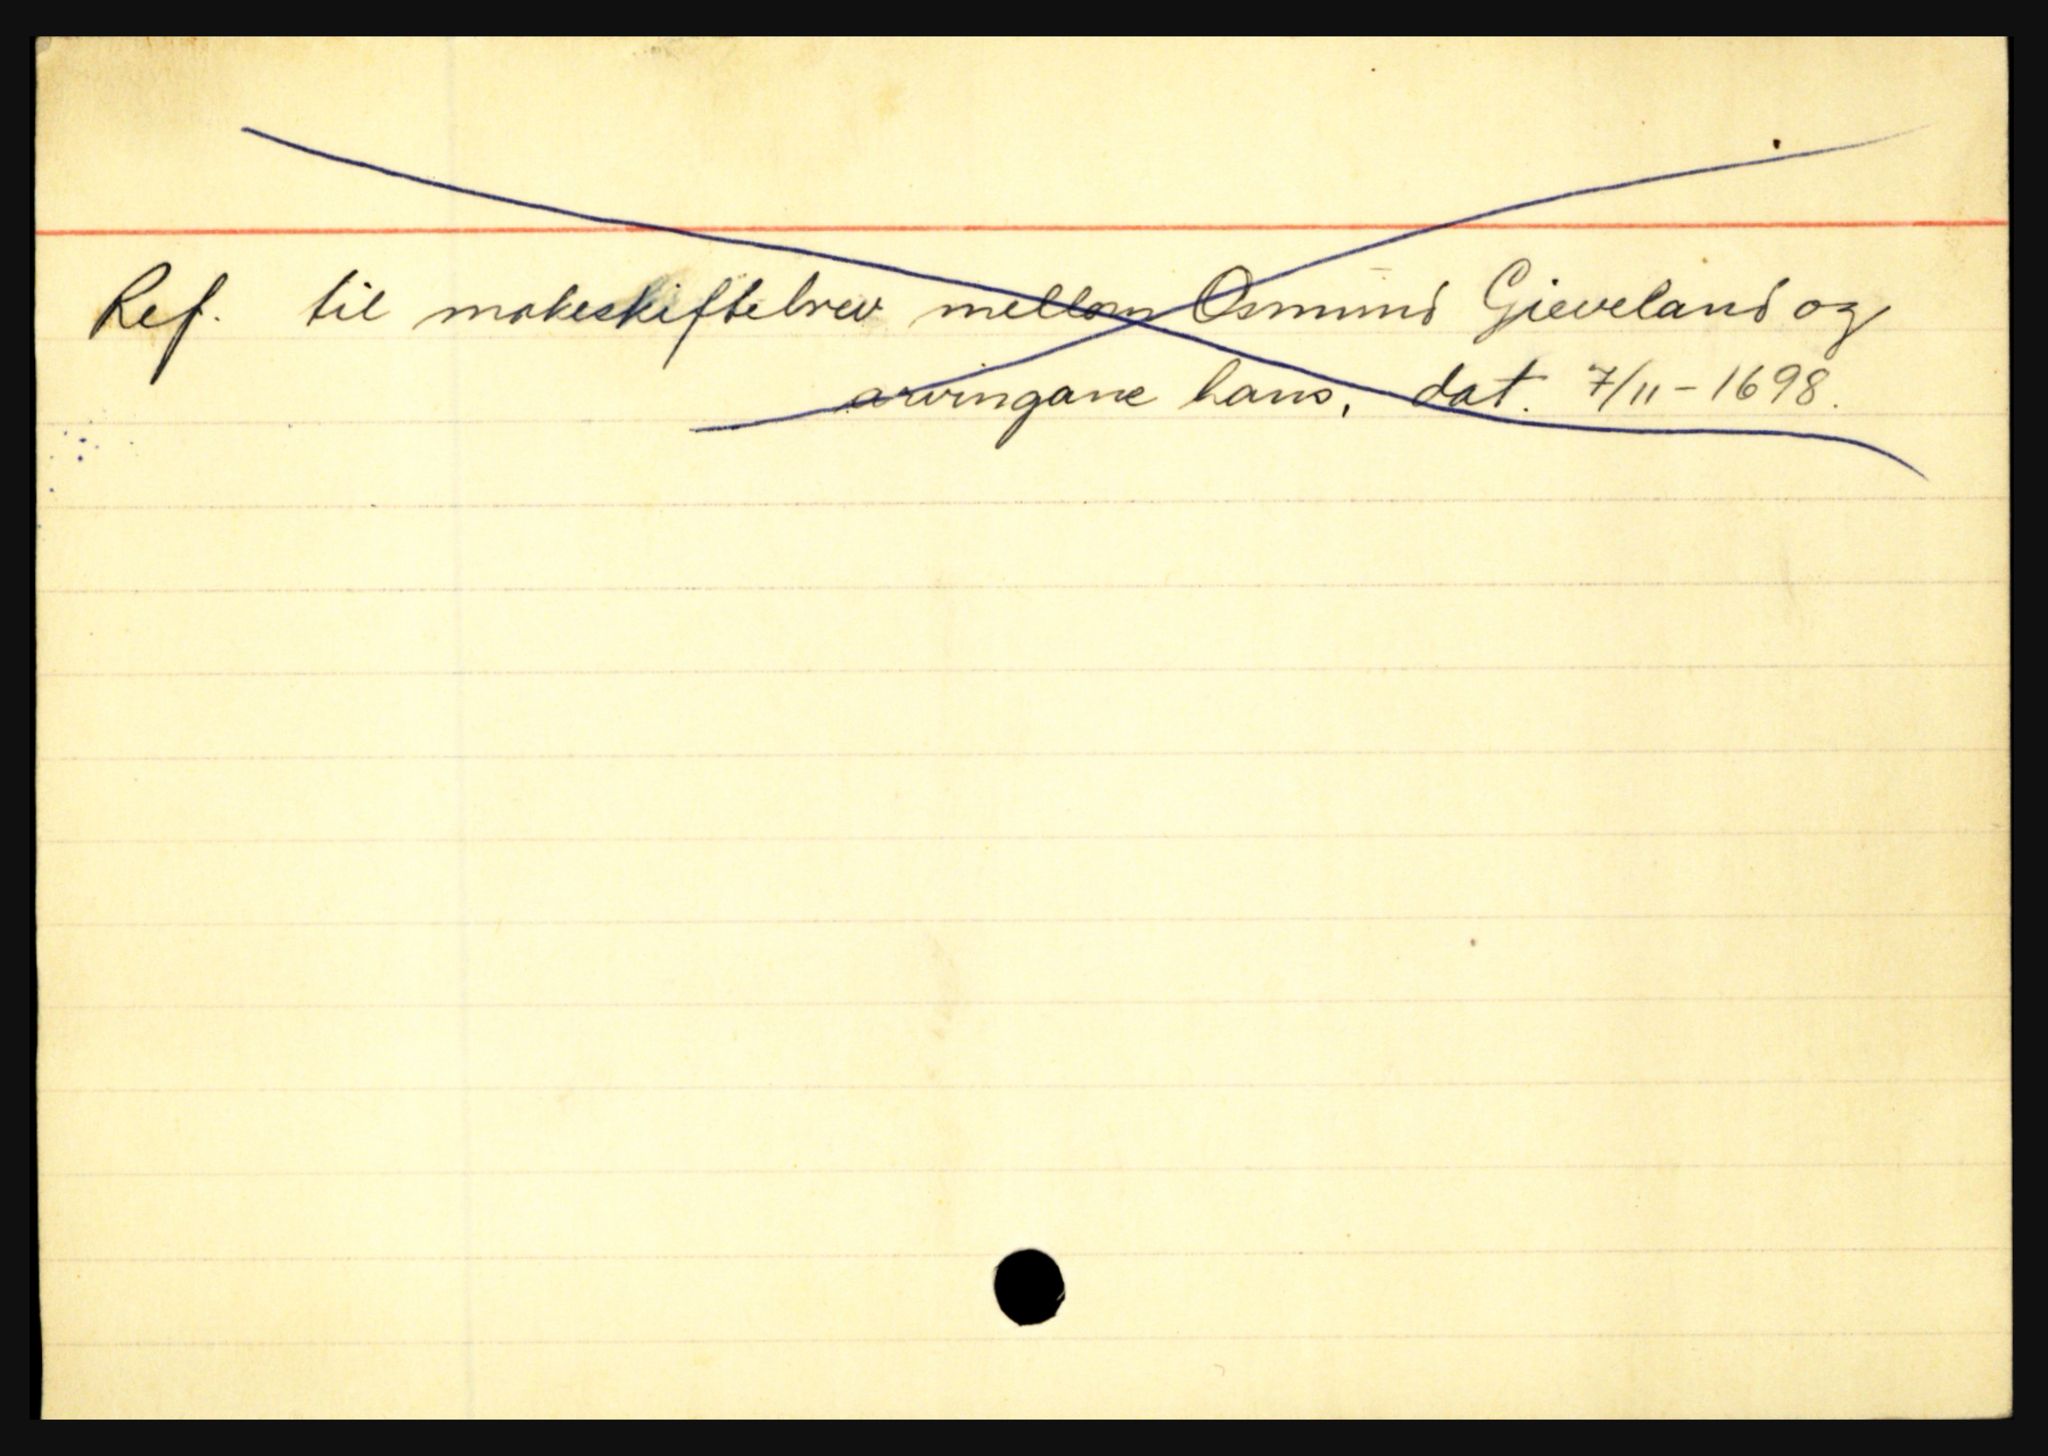 Ref. til makeskiftebrev mellom Osmund Gieveland og
arvingane hans, dat. 7/11-1698.